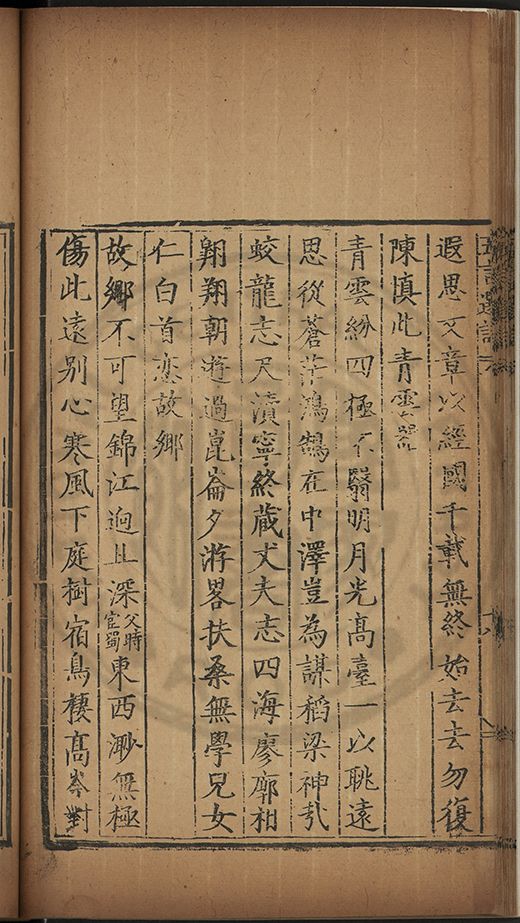 遐思文章以經國千載無終始去去勿復
陳慎此青雲器
青雲紛四極不翳明月光高臺一以眺遠
思從蒼茫鴻鵠在中澤豈為謀稻梁神哉
蛟龍志尺瀆寧終蔵丈夫志四海廖廓相
翱翔朝遊過崑崙夕游畧扶桑無學兒女
仁白首恋故鄉
故鄉不可望錦江逈且深父時宦蜀東西渺無極
傷此遠别心寒風下庭樹宿鳥棲高岑對